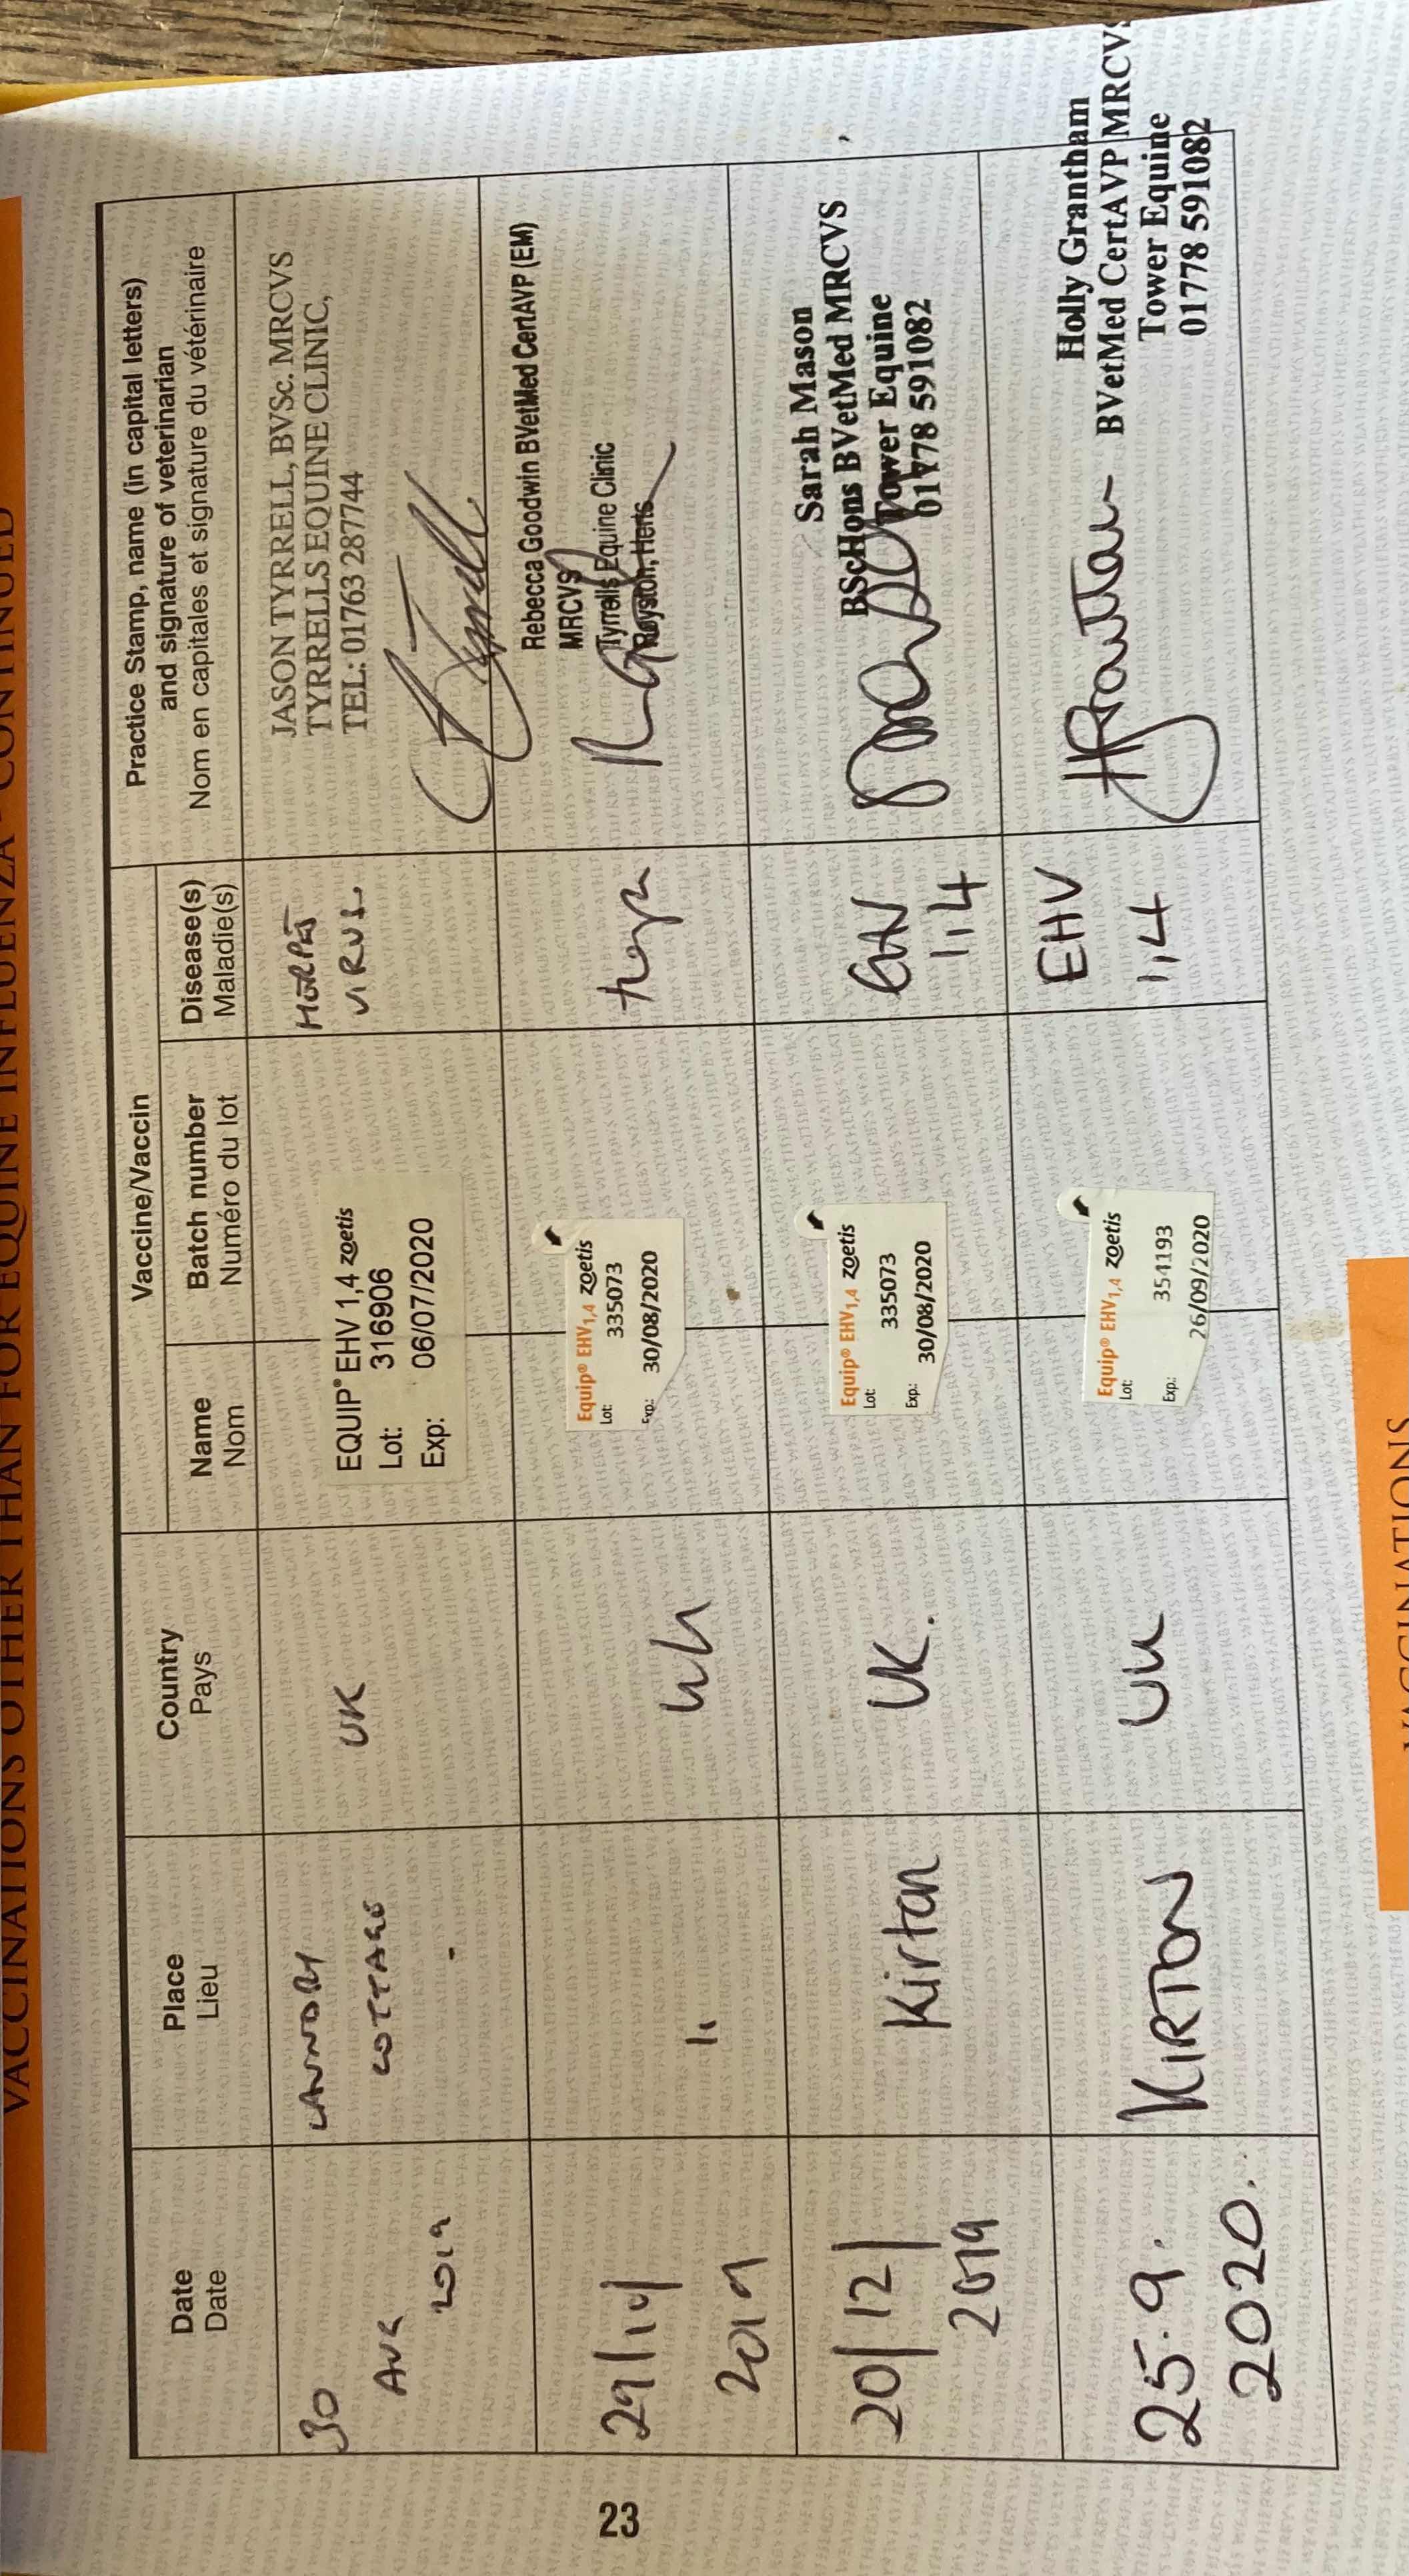 VACCINATIONS OTHER THAN FOR EQUINE INFLUENZA - CONTINUED
Date
Date
Place
Lieu
Country
Pays
Vaccine/Vaccin
Name
Nom
Batch number
Numéro du lot
Disease(s)
Maladie(s)
Practice Stamp, name (in capital letters)
and signature of veterinarian
Nom en capitales et signature du vétérinaire
30
AUG
2019
LAUNDRY
COTTAGE
UK
EQUIP® EHV 1,4 zoetis
Lot: 316906
Exp: 06/07/2020
HERPES
VIRUS.
JASON TYRRELL, BVSc. MRCVS
TYRRELLS EQUINE CLINIC,
TEL: 01763 287744
29/10/
2019
"
UK
Equip® EHV1,4 zoetis
Lot: 335073
Exp.: 30/08/2020
Rebecca Goodwin BVetMed CertAVP (EM)
MRCVS
Tyrrells Equine Clinic
Royston, Herts
20/12/
2019
Kirton
UK.
Equip® EHV1,4 zoetis
Lot: 335073
Exp.: 30/08/2020
EHV
1,4
Sarah Mason
BScHons BVetMed MRCVS
Tower Equine
01778 591082
25.9.
2020.
KIRTON
UK
Equip® EHV1,4 zoetis
Lot: 354193
Exp.: 26/09/2020
EHV
1,4
HGrantham
Holly Grantham
BVetMed CertAVP MRCVS
Tower Equine
01778 591082
23
VACCINATIONS